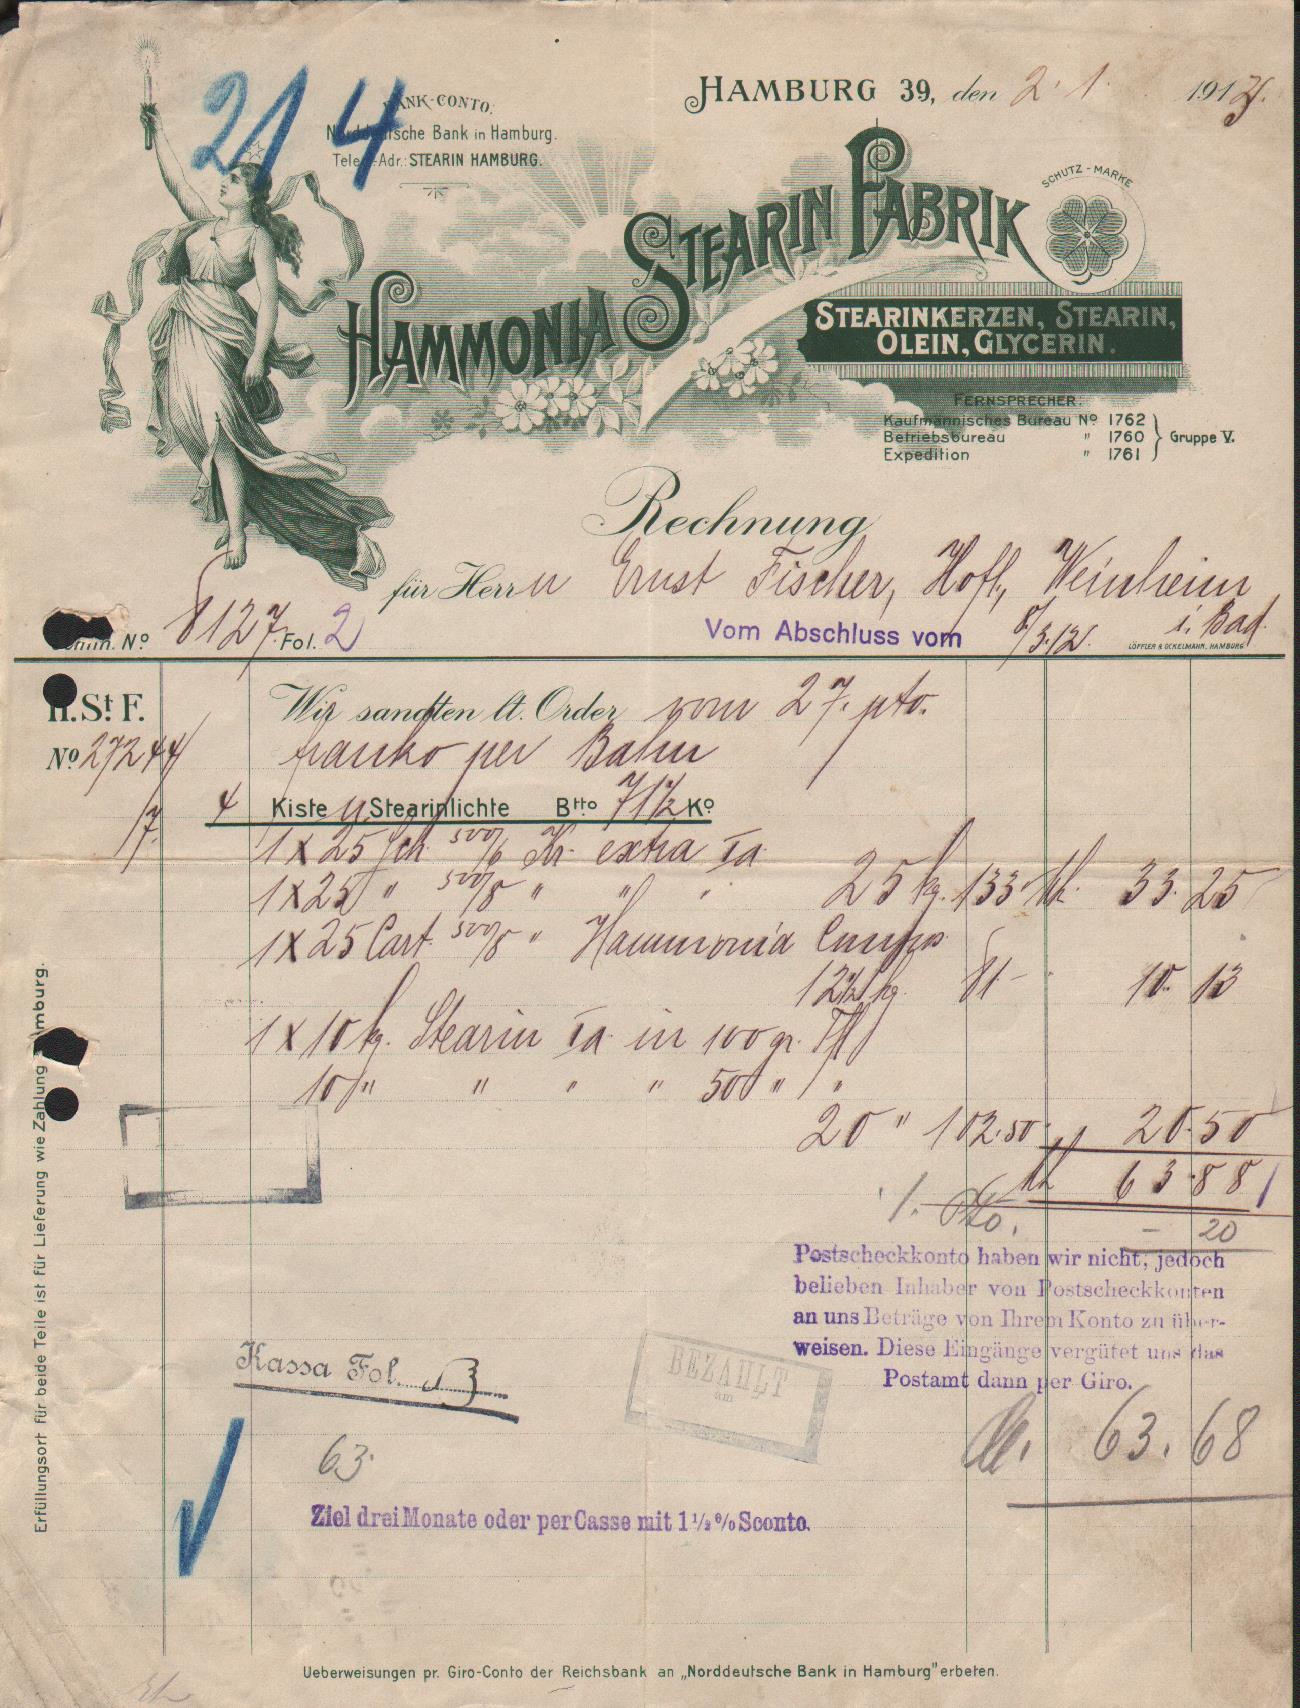 214
BANK-CONTO.
Norddeutsche Bank in Hamburg.
Tele.-Adr.: STEARIN HAMBURG.
HAMBURG 39, den 2. 1. 1913.
SCHUTZ-MARKE
HAMMONIA STEARIN FABRIK
STEARINKERZEN, STEARIN,
OLEIN, GLYCERIN.
FERNSPRECHER:
Kaufmännisches Bureau No 1762
Betriebsbureau " 1760
Expedition " 1761
Gruppe V.
Rechnung
für Herrn Ernst Fischer, Hofl., Weinheim
i. Bad.
No 8127 Fol. 2
Vom Abschluss vom 8/3.12.
LÖFFLER & OCKELMANN, HAMBURG
H. St F. Wir sandten lt. Order vom 27. pto.
No 27244/ franko per Bahn
/7. 4 Kisten Stearinlichte Btto 71½ Ko
1 x 25 Sch. 500/6 Kr. extra Ia
1 x 25 " 500/8 " " " 25 kg. 133.- M. 33.25
1 x 25 Cart. 500/8 " Hammonia Compos.
12½ kg. 81.- 10.13
1 x 10 kg. Stearin Ia in 100 gr. Tfl
10 " " " " 50 " "
20 " 102.50 20.50
M 63.88
./. Pto. - 20
Postscheckkonto haben wir nicht, jedoch
belieben Inhaber von Postscheckkonten
an uns Beträge von Ihrem Konto zu über-
weisen. Diese Eingänge vergütet uns das
Postamt dann per Giro.
Kassa Fol. 13
BEZAHLT
am
M. 63.68
63.
Ziel drei Monate oder per Casse mit 1½% Sconto.
Erfüllungsort für beide Teile ist für Lieferung wie Zahlung Hamburg.
Ueberweisungen pr. Giro-Conto der Reichsbank an „Norddeutsche Bank in Hamburg" erbeten.